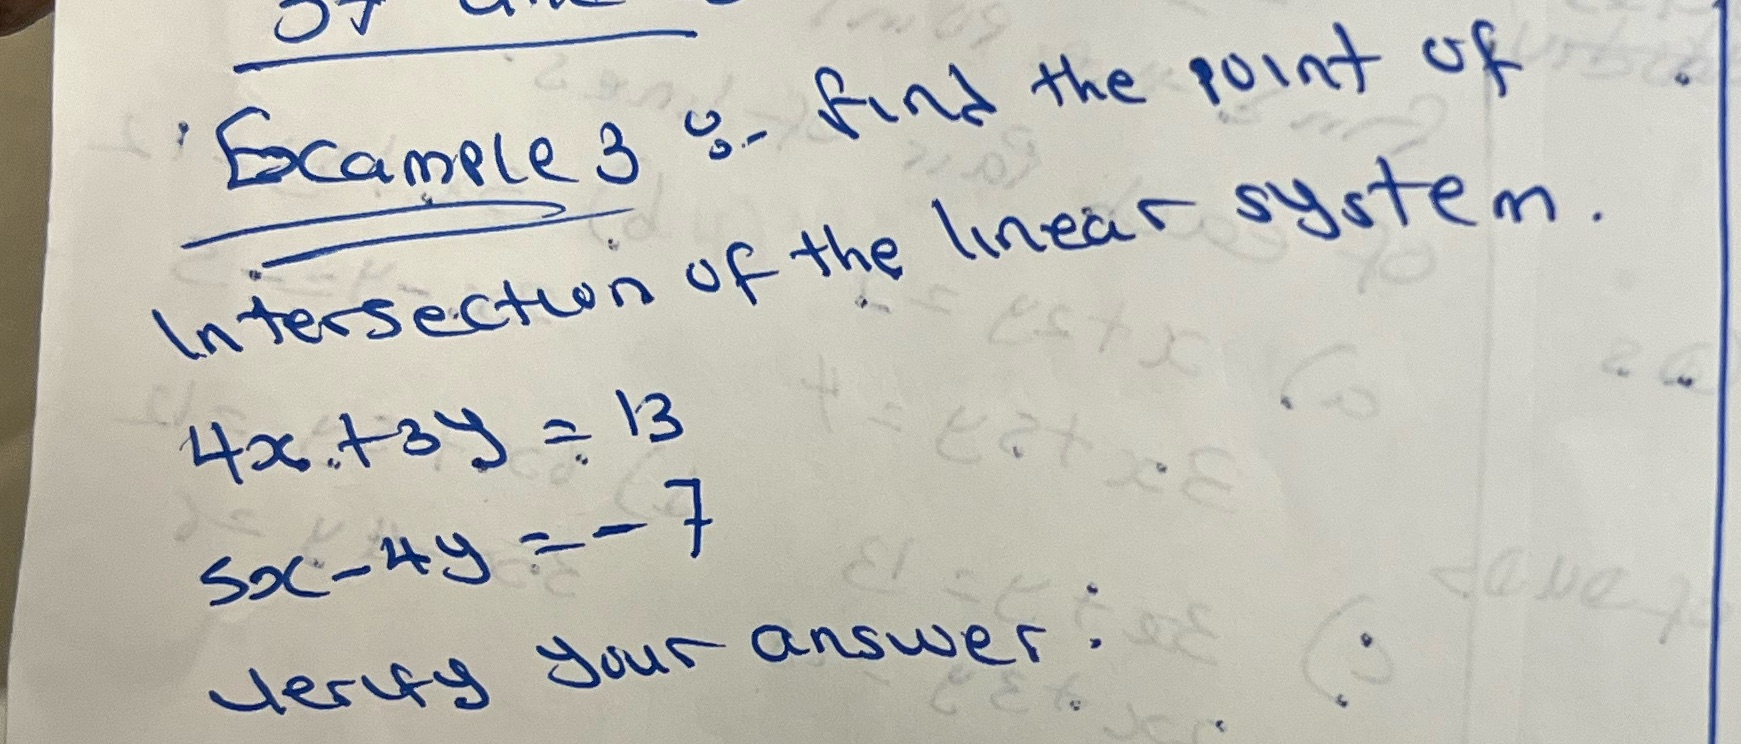 of
Example 3 :- find the point of
Intersection of the linear system.
4x + 3y = 13
5x - 4y = - 7
Verify your answer.